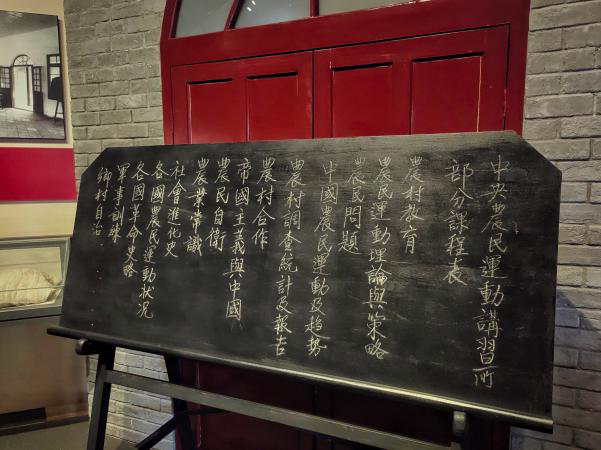 中央農民運動講習所
部分課程表
農村教育
農民運動理論與策略
農民問題
中國農民運動及趋勢
農村調查統計及報告
農村合作
帝國主義與中國
農民自衛
農業常識
社會進化史
各國農民運動狀况
各國革命史略
軍事訓练
鄉村自治